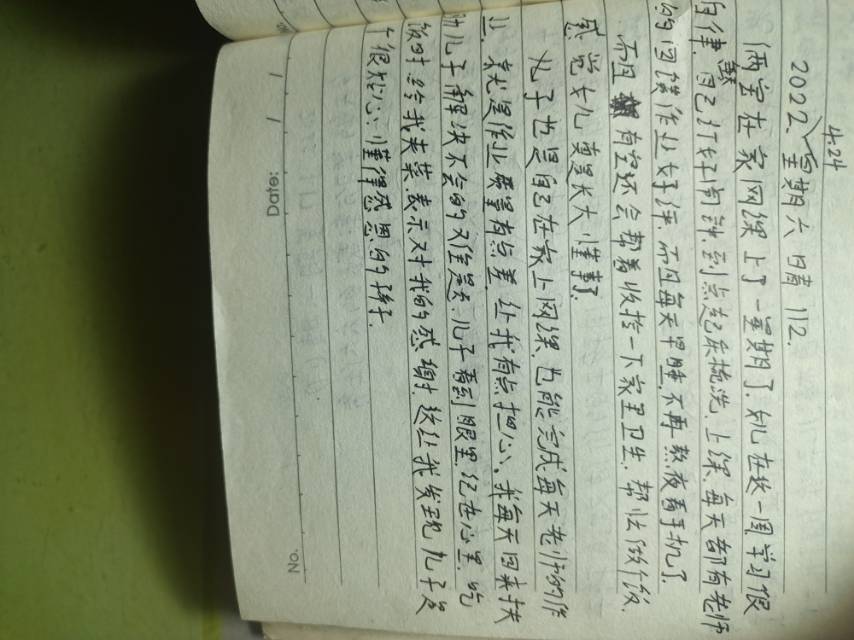 4.24
2022、星期六 晴 112.
俩宝在家网课上了一星期了.女儿在这一周学习很
自律.自己订好闹钟.到点起床梳洗.上课.每天都有老师
的回馈作业好评.而且每天早睡不再熬夜看手机了.
而且有空还会帮着收拾一下家里卫生.帮忙做饭.
感觉女儿真是长大懂事了.
儿子也是自己在家上网课.也能完成每天老师的作
业.就是作业质量有点差.让我有点担心.我每天回来扶
助儿子解决不会的难题.儿子看到眼里.记在心里.吃
饭时.给我夹菜.表示对我的感谢.这让我发现儿子是
个很细心.懂得感恩的孩子.
Date: / /
No.